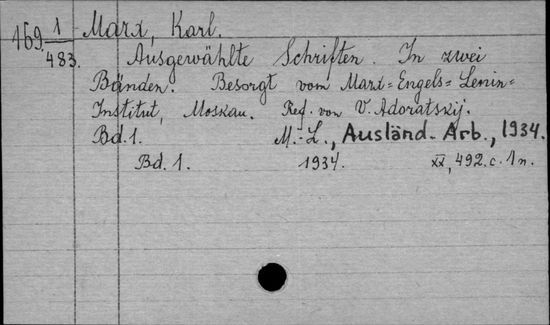 169 1/483. Marx, Karl.
Ausgewählte Schriften. In zwei
Bänden. Besorgt vom Marx=Engels=Lenin=
Institut, Moskau. Red. von V. Adoratskij.
Bd. 1. M.-L., Ausländ. Arb., 1934.
Bd. 1. 1934. XX, 492 c. 1 п.